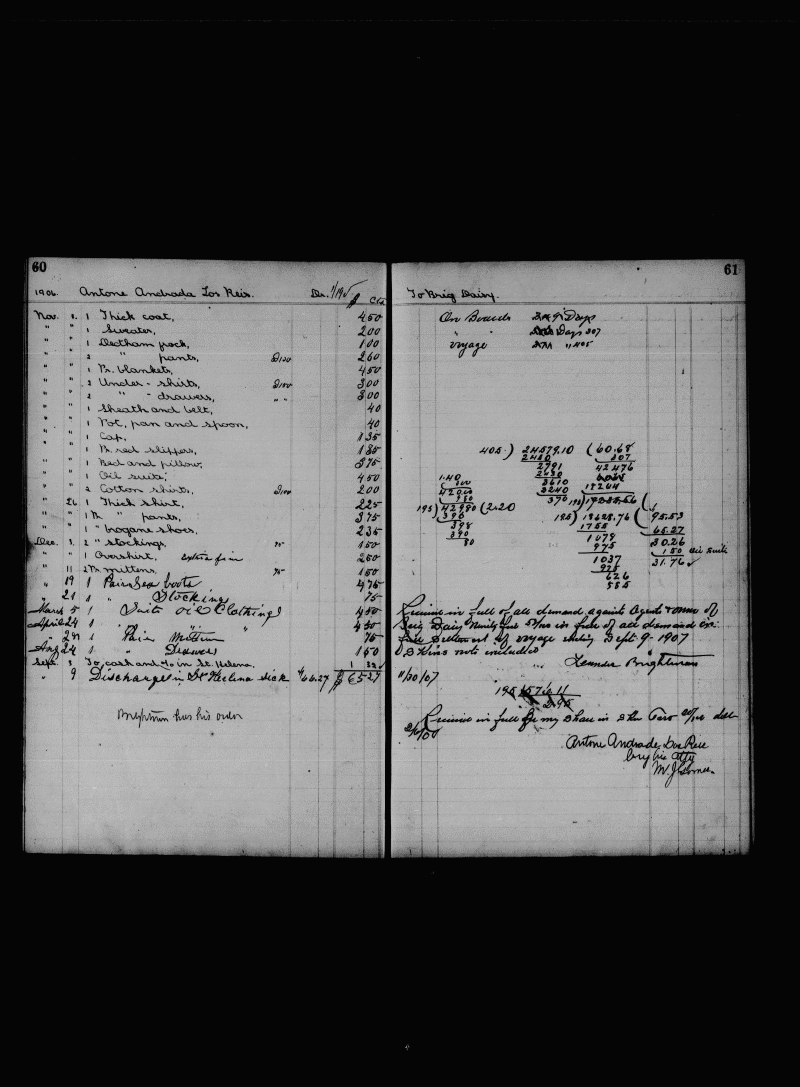 60
1906. Antone Andrada Los Reis. Dr. 1/195
$ Cts.
Nov. 2. 1 Thick coat, 450
" " 1 Sweater, 200
" " 1 frock, 100
" " 2 " pants, 260
" " 1 Pr. blankets, 450
" " 2 Under-shirts, 300
" " 2 " - drawers, " " 300
" " 1 Sheath and belt, 40
" " 1 Pot, pan and spoon, 40
" " 1 Cap, 135
" " 1 Pr. red slippers, 135
" " 1 Bed and pillow, 375
" " 1 Oil suits, 450
" " 2 Cotton shirts, 200
" 26 1 Thick shirt, 225
" " 1 Pr. " pants, 375
" " 1 " brogane shoes, 235
Dec. 3. 2 " stockings, 75 150
" " 1 Overshirt, Extra fine 250
" 11 2 Pr. mittens, 75 150
" 19 1 Pair Sea boots 475
" 21 1 " Stocking 75
March 5 1 Suits Oil Clothing 450
April 24 1 " " " 450
" 29 1 Pair Mitten 75
Aug 24 1 " Drawers 150
Sept. 3 To cash and in St. Helena. 1
" 9 Discharged in St Helena sick 66.27 $ 6527
has his order
61
To Brig Daisy.
On Board Days
" " Days 307
voyage " 405
405.) 24579.10 (60.68
2430 307
2791 42476
2430
3610 18204
3240
370
1.40
300
42000
195) 42980 (2.20
390
398
390
80
195) 18628.76 ( 95.53
1755 65.27
1078 30.26
975 1.50 oil suits
1037 31.76 ✓
975
626
585
Received in full of all demand against Agent & owner of
Brig Daisy Ninety five in full of all demand
full Settlement of voyage ending Sept 9 - 1907
not included
Leander Brightman
11/30/07
195
2.95
Received in full for my Share in
Antone Andrade Dos Reis
by his Atty
M. J. Gomes